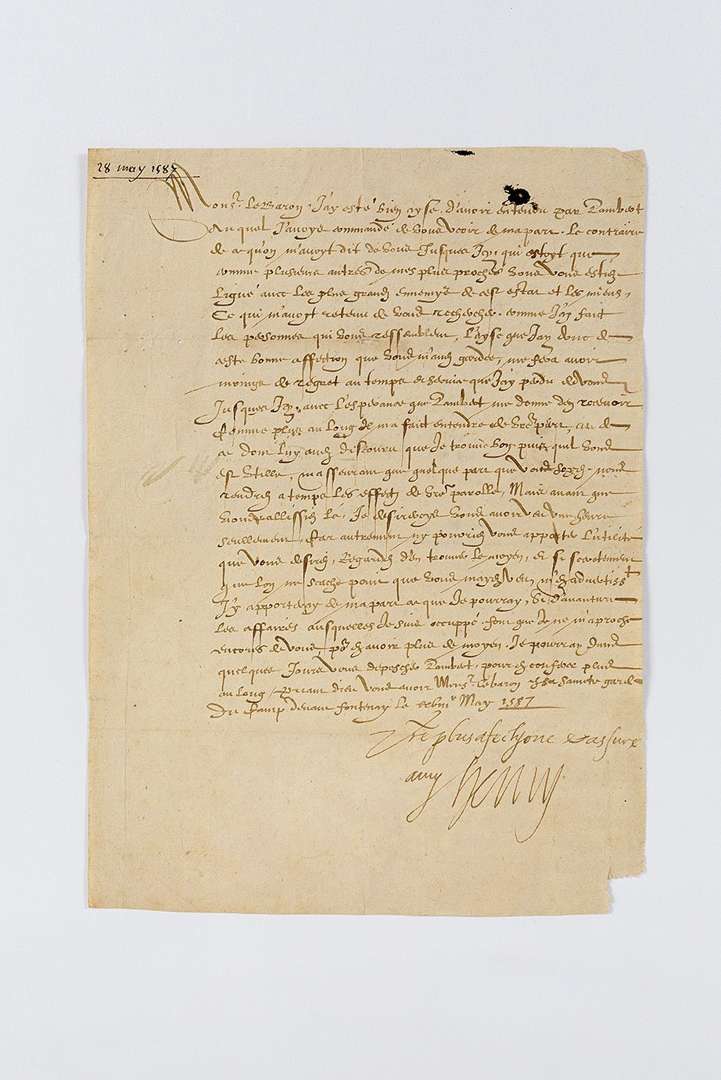 28 may 1587
Mons.r le Baron. J'ay esté bien ayse d'avoir entendu par Pambet
auquel j'avoye commandé de vous veoir de ma part, le contraire
de ce qu'on m'avoyt dit de vous jusques icy, qui estoyt que
comme plusieurs autres de mes plus proches vous vous estiez
ligué avec les plus grands ennemys de cest estat et les miens,
Ce qui m'avoyt retenu de vous rechercher comme j'ay fait
les personnes qui vous ressemblent, L'ayse que j'ay donc de
ceste bonne affection que vous m'avez gardée, me fera avoir
moings de regret au temps et service que j'ay perdu de vous
jusques icy, avec l'esperance que Pambet me donne d'en recevoir
comme plus au long il m'a fait entendre de vre part, et de
ce dont luy avez discouru que je trouve bon puis qu'il vous
est utille, m'asseurant que quelque part que vous soyez vous
rendrez a temps les effectz de vre parolle, Mais avant que
vous y allissiez je desireroye vous avoir veu une heure
seullement, Car autrement ny pourriez vous apporter l'utilité
que vous desirez, Regardez d'en trouver le moyen, et si secretement
que l'on ne scache point que vous m'ayez veu, m'en advertiss.t
J'y apporteray de ma part ce que je pourray, Si d'avanture
les affaires ausquelles je suis occuppé font que je ne m'aproche
encores de vous, po.r en avoir plus de moyen, Je pourray dans
quelques jours vous depescher Pambet, pour en conferer plus
au long, Priant dieu vous avoir Mons.r le baron en sa saincte garde
Du Camp devant fontenay le xxviii.e May 1587
Vre plus afectyoné et assuré
amy Henry